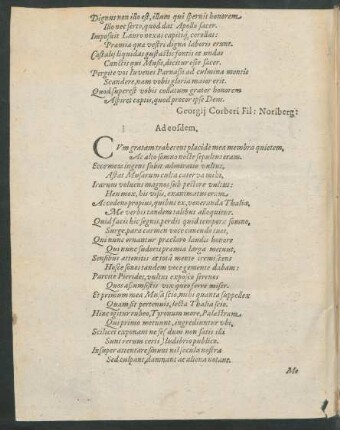 Dignus non illo est, illum qui spernit honorem,
Illo nec serto, quod dat Apollo sacer.
Imposuit Lauro nexas capitiq; corollas:
Præmia quæ vestri digna laboris erunt.
Castalij liquidas gustastis fontis et undas
Cunctisque Musis, dicitur esse sacer.
Pergite vos Iuvenes Parnasi ad culmina montis
Scandere, nam vobis gloria maior erit.
Quod superest vobis collatum grator honorem
Assiret captis, quod precor ipse Deus.
Georgij Corberi Fil: Noriberg:
Ad eosdem,
CVm gratam traherent placidè mea membra quietem,
Ac alto somno nocte sepultus eram.
Ecce novem ingens subit admiratio vultus,
Astat Musarum culta caterva mihi.
Irarum volvens magnos sub pectore vultus:
Heu mox, his visis, exanimatus eram.
Accedens propius, quibus ex, veneranda Thalia,
Me verbis tandem talibus alloquitur.
Quid facis hic segnis, perdis quid tempora somno,
Surge, para carmen voce canende tuos,
Qui nunc ornantur præclaræ laudis honore
Qui nunc sudoris præmia larga metunt.
Sensibus attonitis ac totâ mente
Hosce sonos tandem voce gemente dabam:
Parcite Pierides, vultus exposco severos
Quos assumsistis vix queo ferre miser.
Et primum mea Musa scio, mihi quanta supellex
Quam sit pertenuis, tecta Thalia scio.
Hinc igitur rubeo, Tyronum more, Palæstram
Qui primo metuunt, ingrediuntur ubi,
Scilicet exponant ne sese dum non satis illi
Sunt rerum certi) ludibrio publico.
Insuper attentare sinunt nil secula nostra
Sed culpant, damnant ac aliena notant.
Me